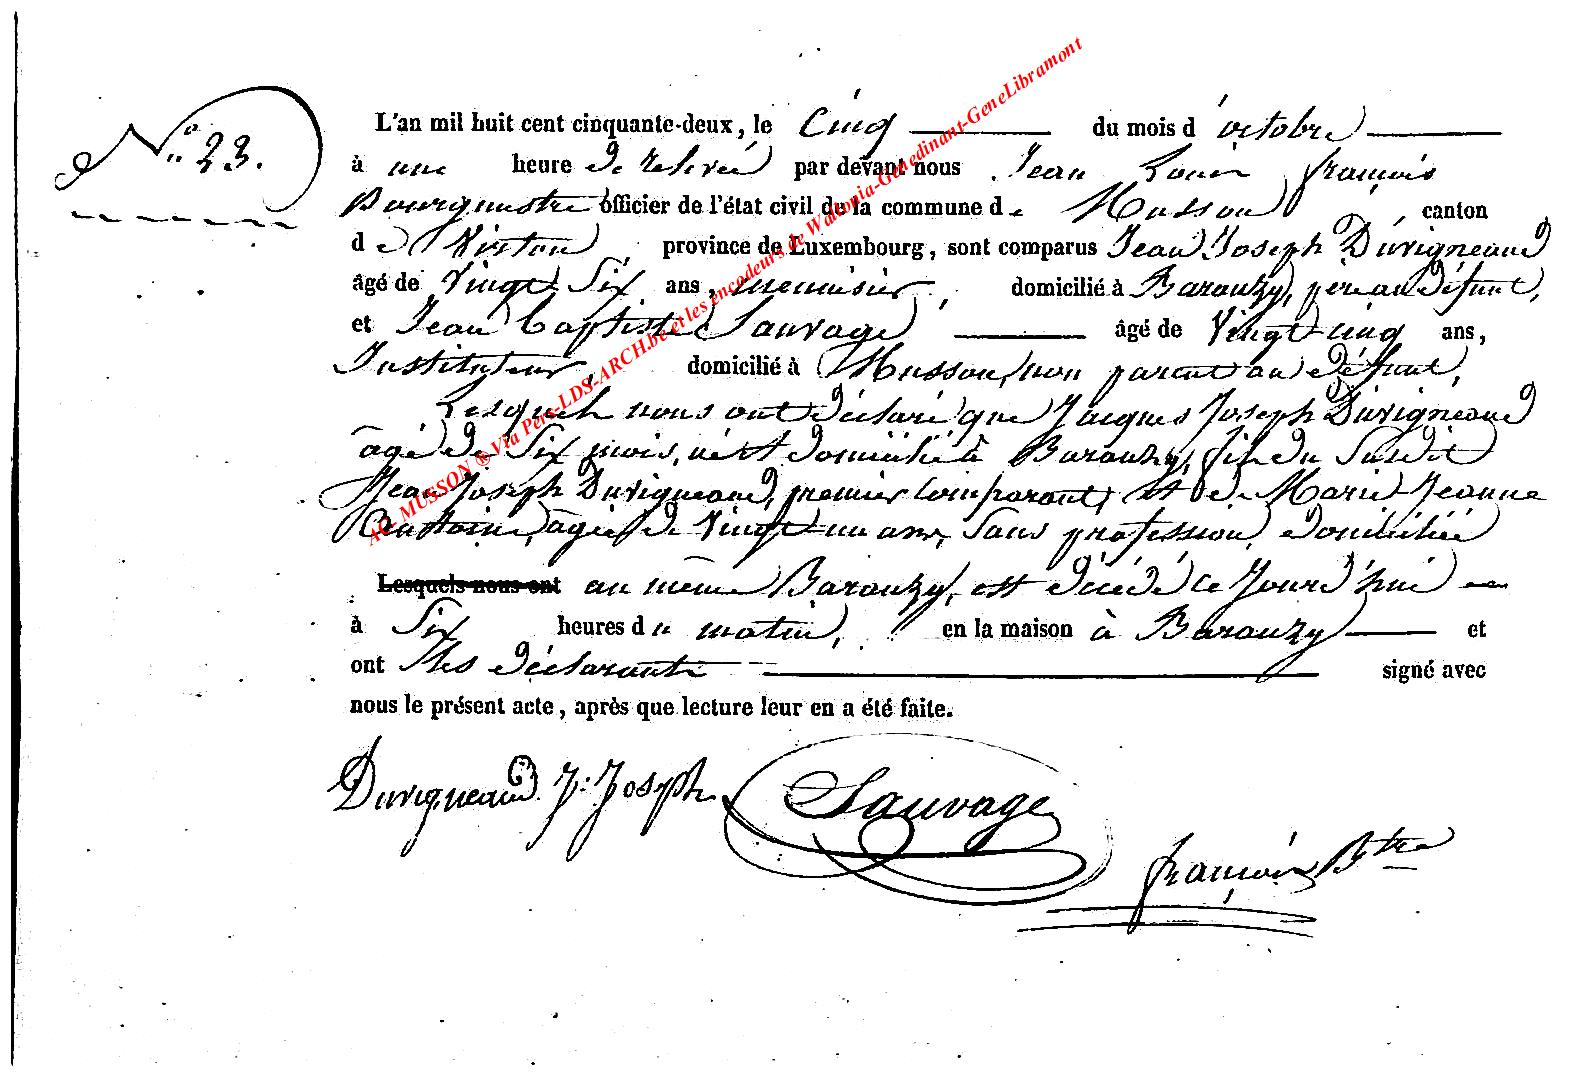 N° 23.
L'an mil huit cent cinquante-deux, le Cinq du mois d'octobre
à une heure de relevée par devant nous Jean Louis françois
Bourguestre officier de l'état civil de la commune de Musson canton
de Virton, province de Luxembourg, sont comparus Jean Joseph Duvigneaud
âgé de Vingt Six ans, menuisier, domicilié à Baranzy, père au défunt,
et Jean Baptiste Sauvage âgé de Vingt cinq ans,
Instituteur, domicilié à Musson, non parent au défunt,
Lesquels nous ont déclaré que Jacques Joseph Duvigneaud
âgé de Six mois, né et domicilié à Baranzy, fils du Susdit
Jean Joseph Duvigneaud, premier Comparant, et de Marie Jeanne
âgée de Vingt un ans, Sans profession, domiciliée
Lesquels nous ont au même Baranzy, est décédé ce Jourd'hui
à Six heures du matin, en la maison à Baranzy et
ont les déclarants signé avec
nous le présent acte, après que lecture leur en a été faite.
Duvigneaud J: Joseph Sauvage
françois Btre
AG MUSSON ® Via Pers-LDS-ARCH.be et les encodeurs de Wallonia-Genedinant-GeneLibramont